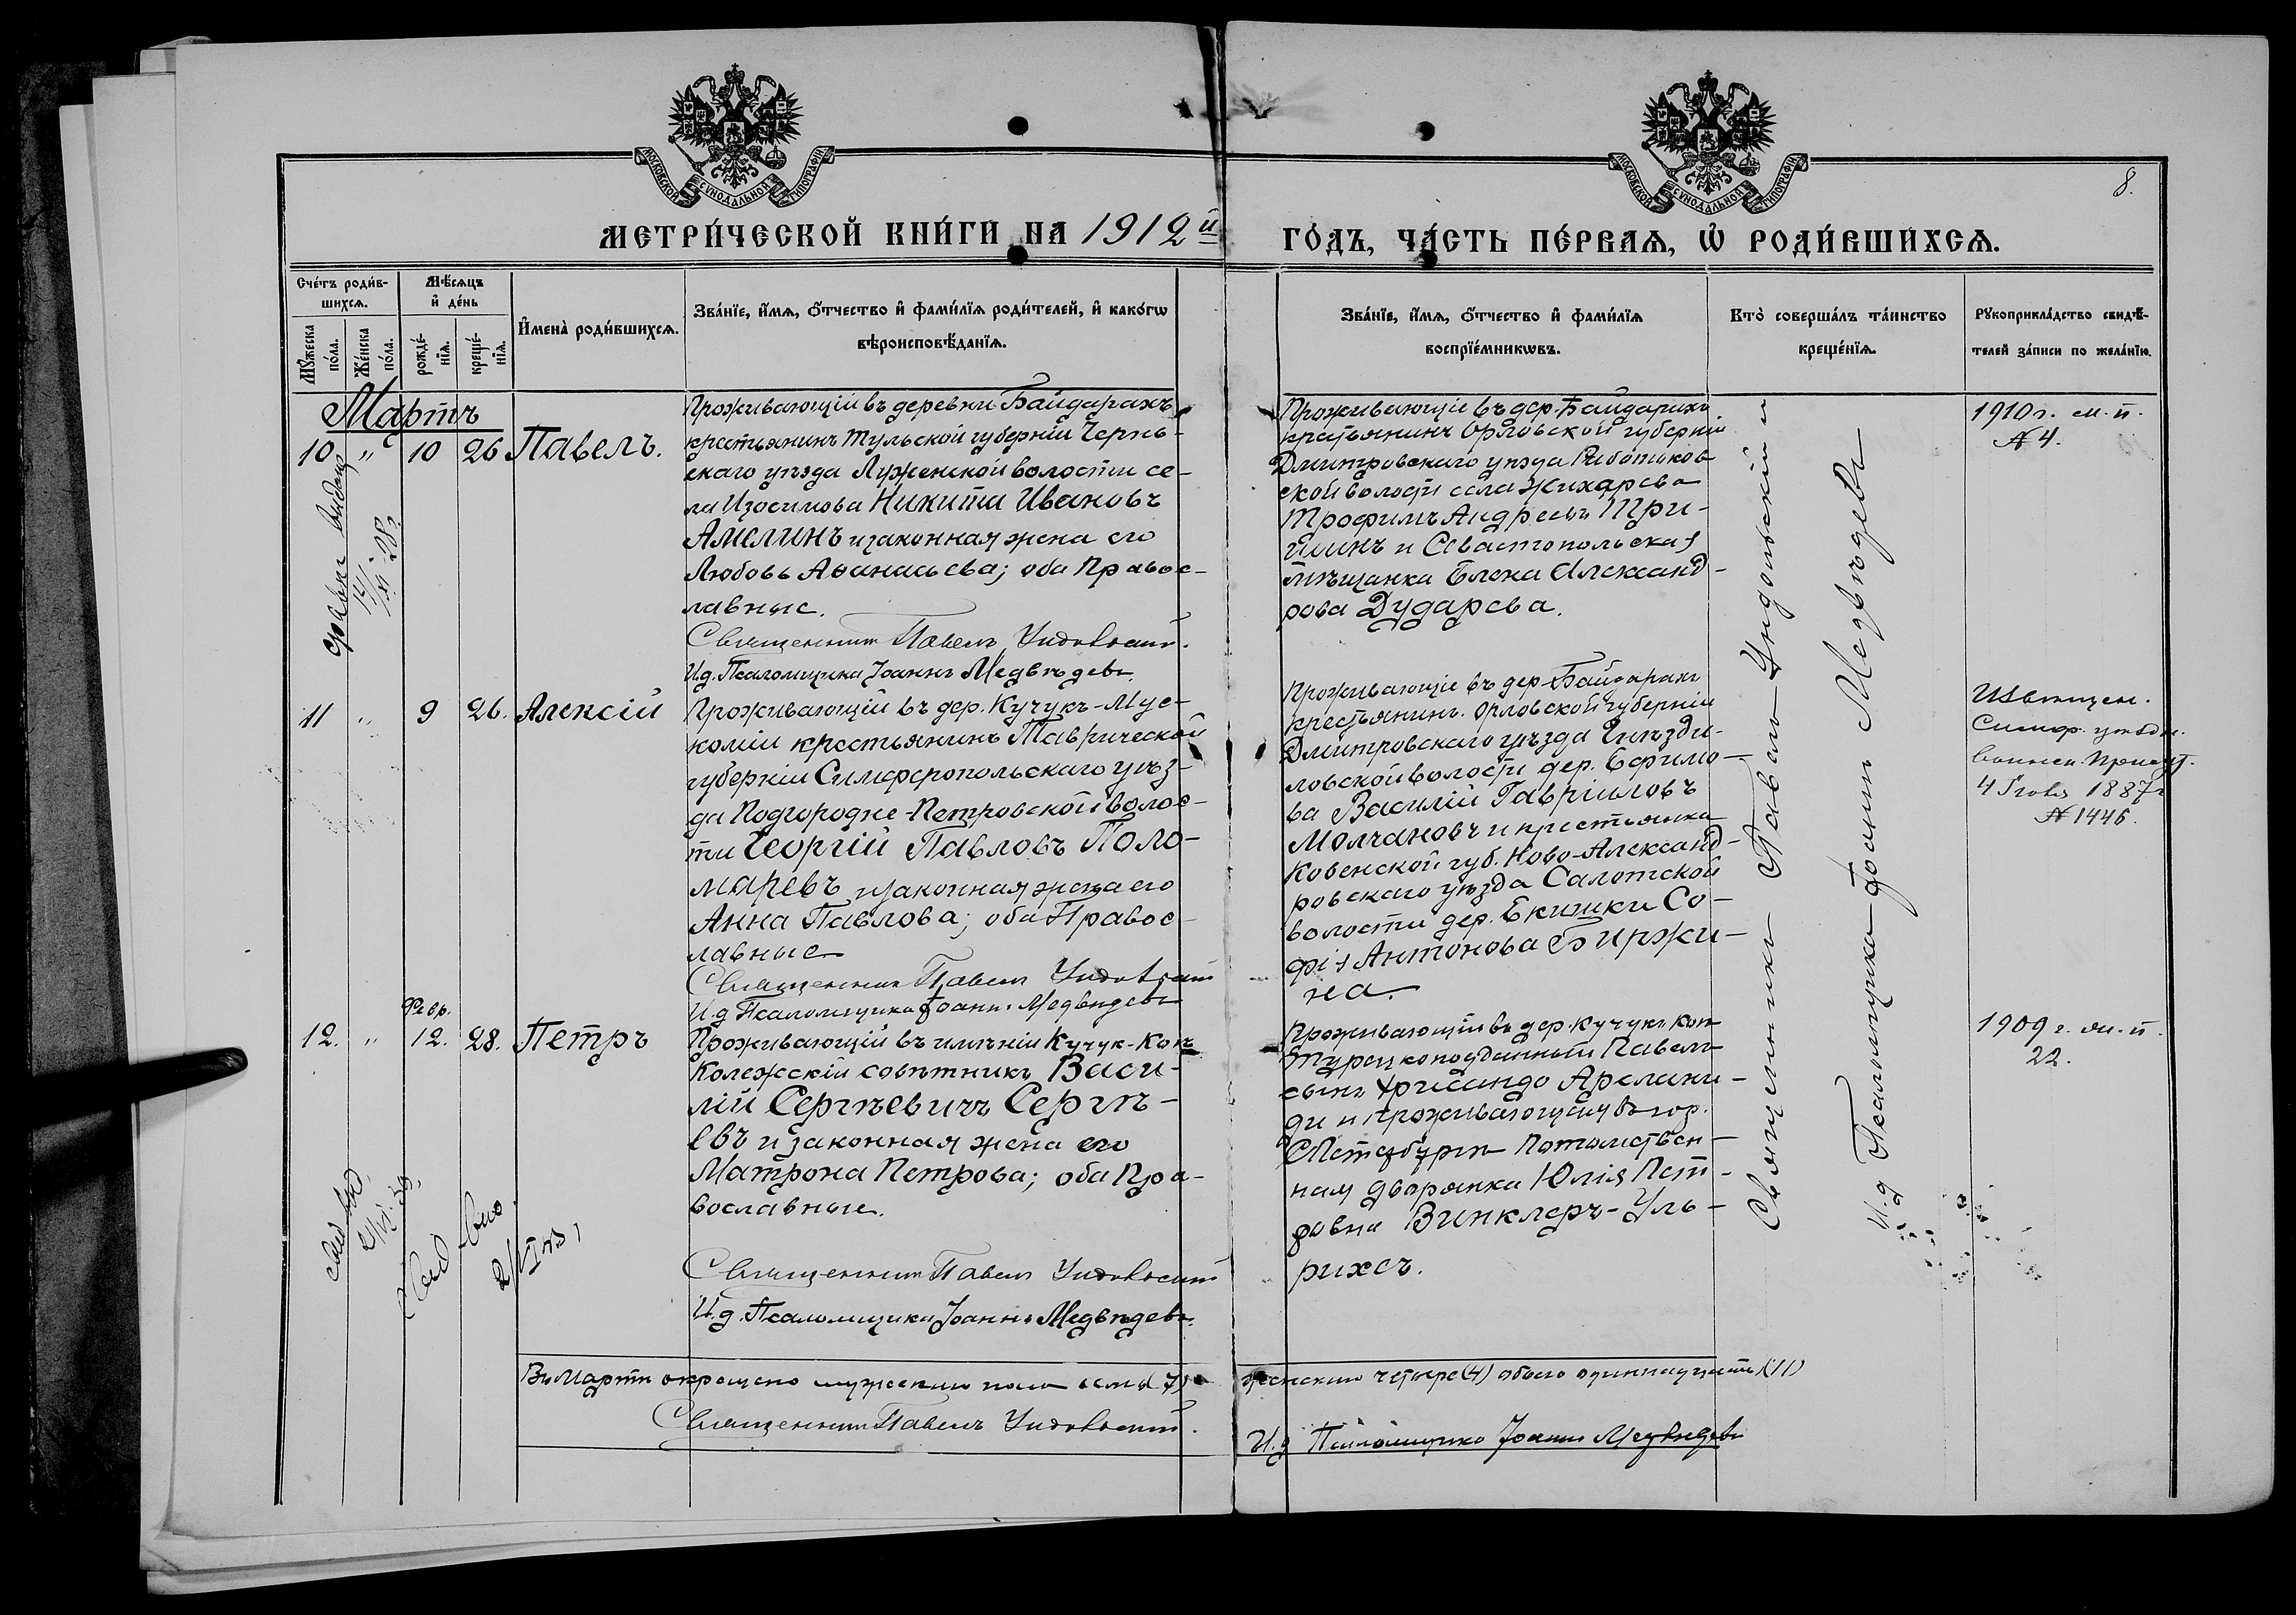 МОСКОВСКОЙ СѴНОДАЛЬНОЙ ТИПОГРАФІИ
МОСКОВСКОЙ СѴНОДАЛЬНОЙ ТИПОГРАФІИ
8.
МЕТРИ́ЧЕСКОЙ КНИ́ГИ НА 1912й ГО́ДЪ, ЧА́СТЬ ПЕ́РВАЯ, Ѽ РОДИ́ВШИХСЯ.
Сче́тъ роди́в-
шихся.
Мꙋ́жеска по́ла.
Же́нска по́ла.
Мѣ́сяцъ и де́нь
рожде́-
нїя.
креще́-
нїя.
И҆мена̀ роди́вшихся.
Зва́нїе, и҆́мя, ѻ҆́тчество и҆ фами́лїя роди́телей, и҆ како́гѡ
вѣроисповѣ́данїя.
Зва́нїе, и҆́мя, ѻ҆́тчество и҆ фами́лїя
воспрїе́мникѡвъ.
Кто̀ соверша́лъ та́инство
креще́нїя.
Рꙋкоприкла́дство свидѣ́-
телей за́писи по жела́нїю.
Мартъ
10 " 10 26 Павелъ.
Проживающій въ деревни Байдарахъ
крестьянинъ Тульской губерніи Чернь-
скаго уѣзда Луженской волости се-
ла Изосимова Никита Ивановъ
Амелинъ и законная жена его
Любовь Аѳанасьева; оба Правос-
лавные.
Священникъ Павелъ Ундольскій.
И.д. Псаломщика Іоаннъ Медвѣдевъ.
Проживающіе въ дер. Байдарахъ
крестьянинъ Орловской губерніи
Дмитровскаго уѣзда
ской волости села Жихарева
Трофимъ Андреевъ Три-
шинъ и Севастопольская
мѣщанка Елена Александ-
рова Дударева.
1910 г. м. п.
№ 4.
11 " 9 26. Алексій
Проживающій въ дер. Кучукъ-Мус-
коміи крестьянинъ Таврической
губерніи Симферопольскаго уѣз-
да Подгородне-Петровской волос-
ти Георгій Павловъ Поло-
маревъ и законная жена его
Анна Павлова; оба Правос-
лавные
Священникъ Павелъ Ундольскій
И.д. Псаломщика Іоаннъ Медвѣдевъ
Проживающіе въ дер. Байдарахъ
крестьянинъ Орловской губерніи
Дмитровскаго уѣзда Гнѣзди-
ловской волости дер. Ефимо-
ва Василій Гавріиловъ
Молчановъ и крестьянка
Ковенской губ. Ново-Александ-
ровскаго уѣзда Салотской
волости дер. Екишки Со-
фія Антонова Биржи-
на.
Извѣщен.
Симф. уѣздн.
воинск. Присут.
1887 г.
№ 1446.
Февр.
12. " 12. 28. Петръ
Проживающій въ имѣніи Кучук-Кой
Колежскій совѣтникъ Васи-
лій Сергѣевичъ Сергѣ-
евъ и законная жена его
Матрона Петрова; оба Пра-
вославные.
Священникъ Павелъ Ундольскій
И.д. Псаломщика Іоаннъ Медвѣдевъ.
Проживающій въ дер. Кучукъ Кой
Турецкоподданный Павелъ
сынъ Хрисандо Арслани-
ди и проживающая въ гор.
СПетербургѣ Потомствен-
ная дворянка Юлія Пет-
ровна Винклеръ-Уль-
рихсъ.
1909 г. м. п.
22.
Священникъ Павелъ Ундольскій и
И.д. Псаломщика Іоаннъ Медвѣдевъ
Въ Мартѣ окрещено мужескаго пола семь (7) женскаго четыре (4) обоего одиннадцать (11)
Священникъ Павелъ Ундольскій.
И.д. Псаломщика Іоаннъ Медвѣдевъ